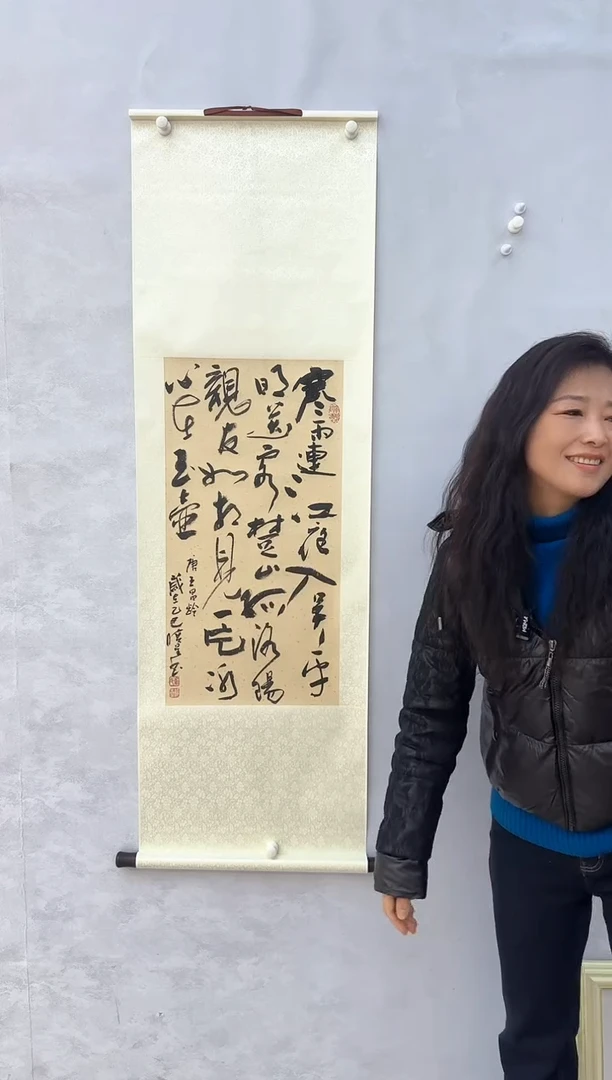 寒雨連江夜入吴平
明送客楚山孤洛陽
親友如相見一片冰
心在玉壺
唐王昌齡
歲乙巳